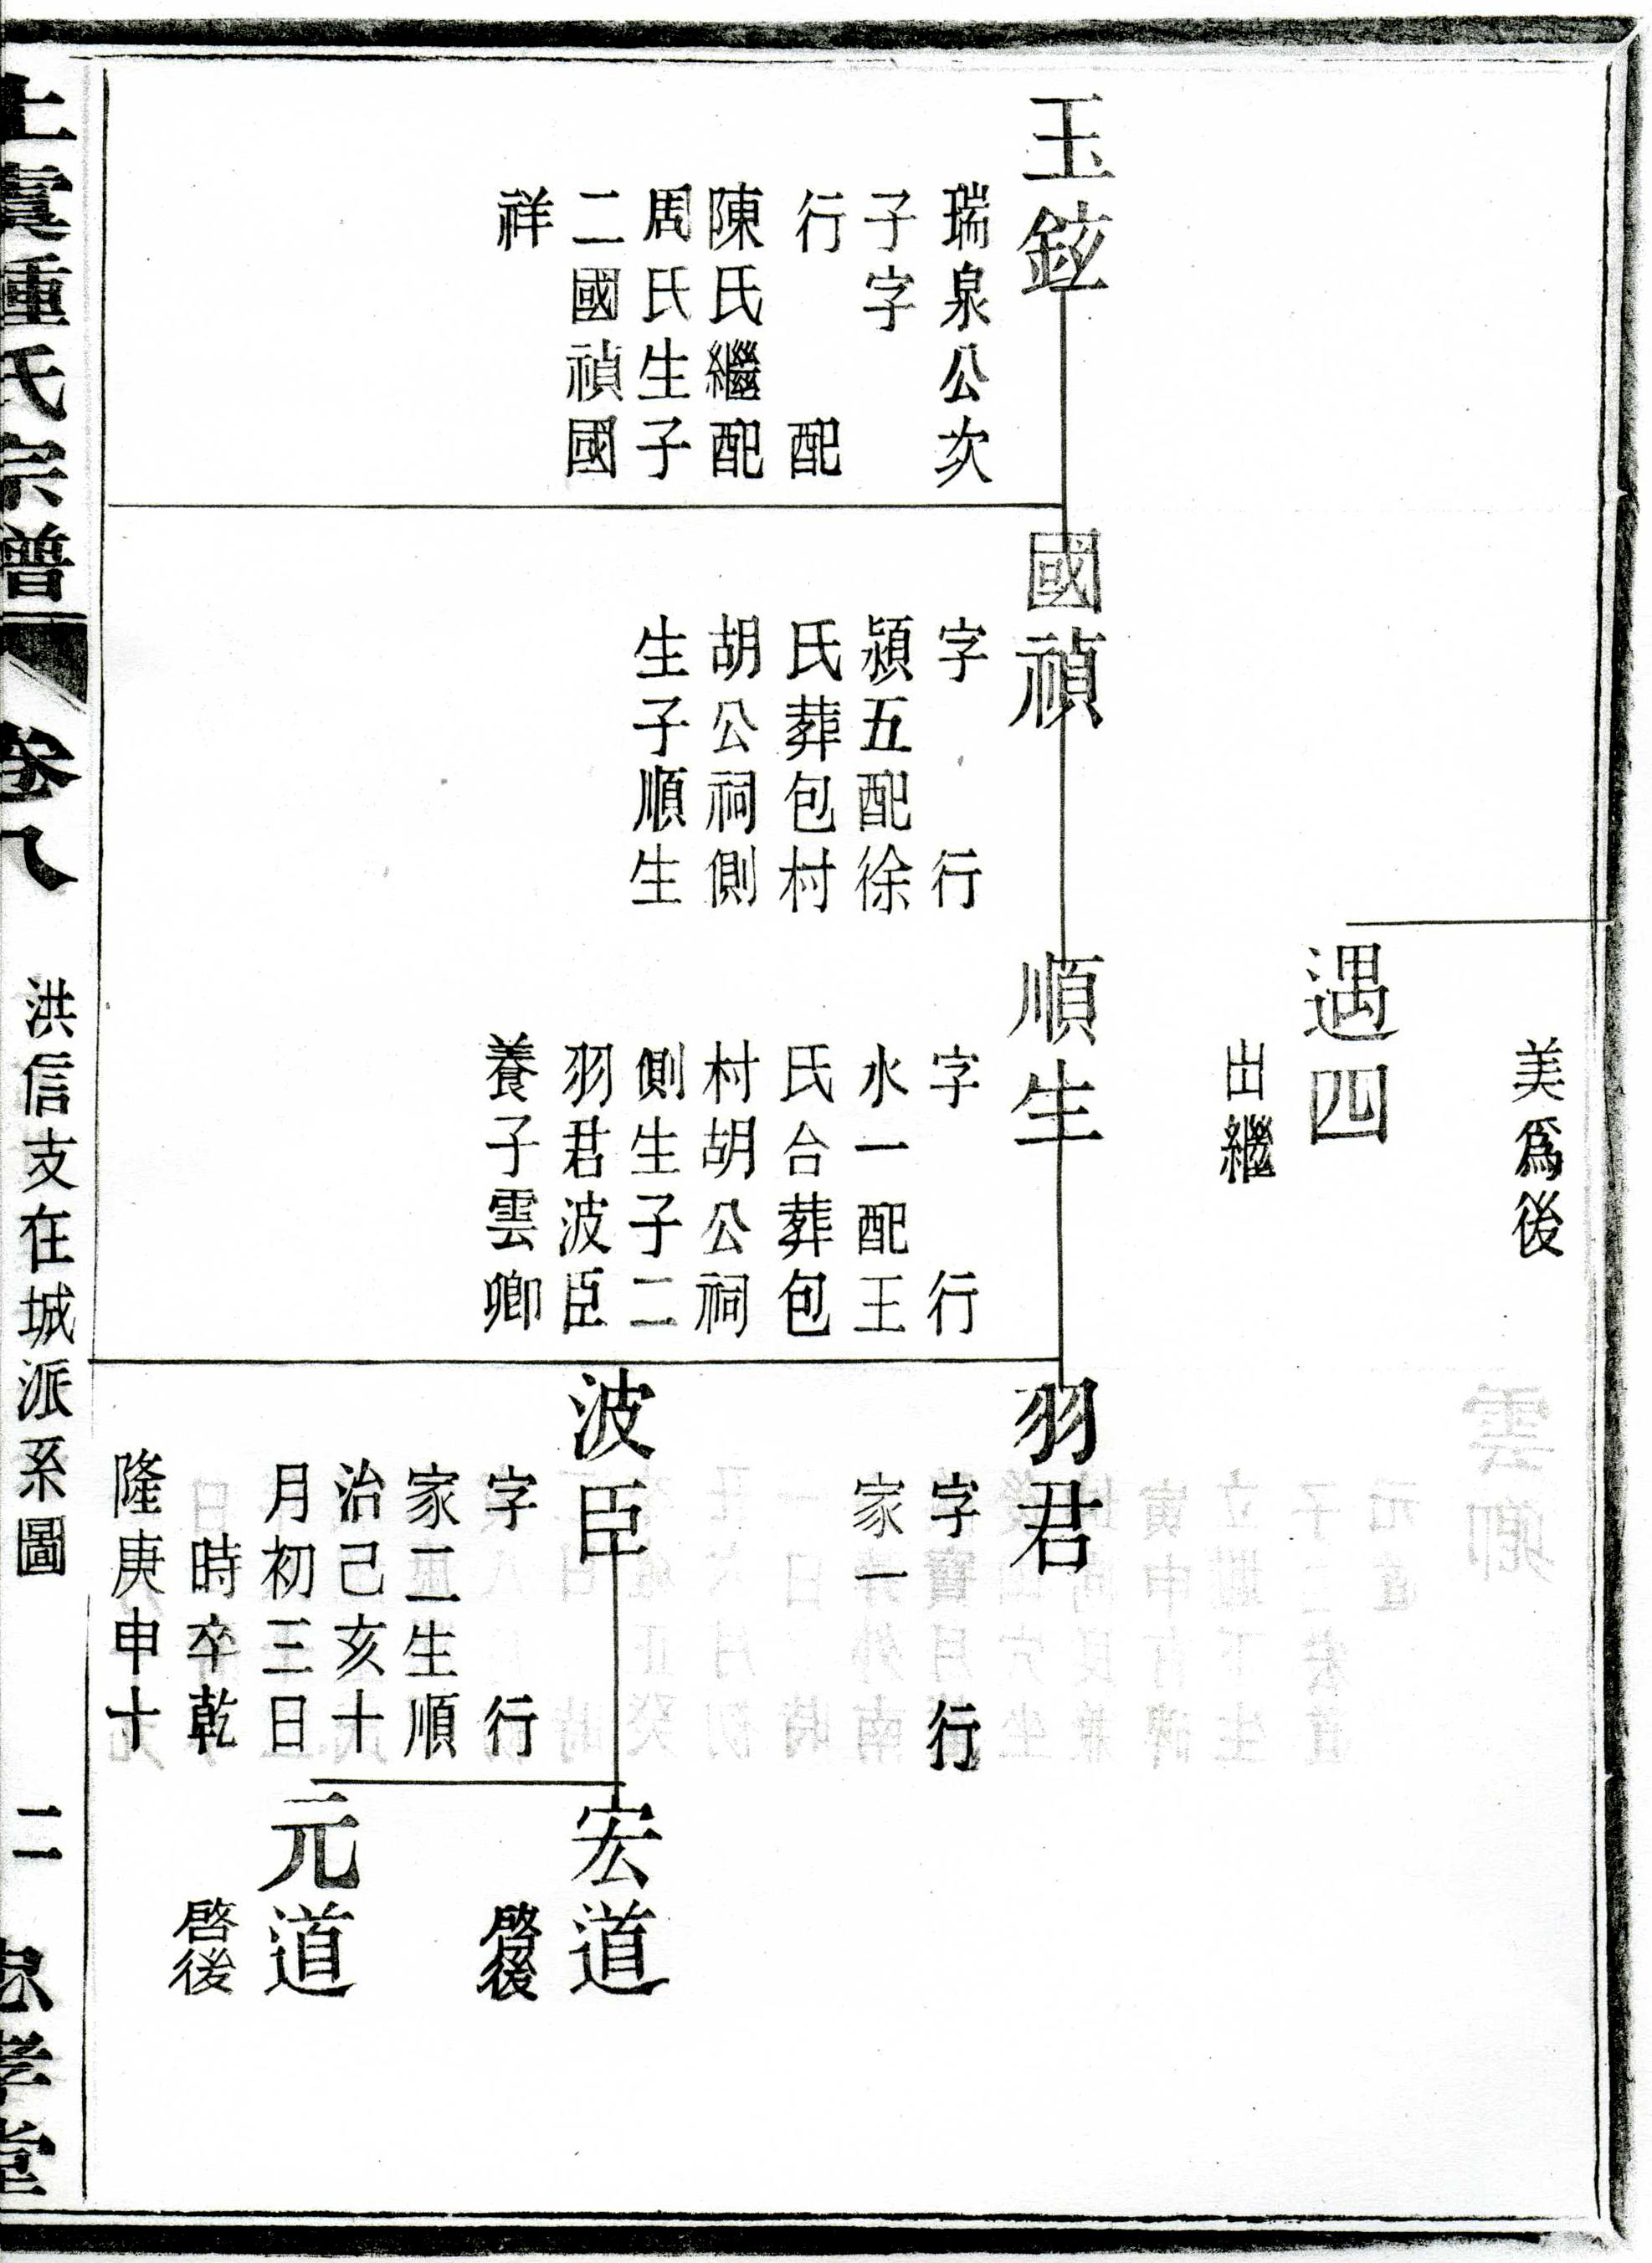 美爲後
遇四
出繼
玉鉉
瑞泉公次
子字
行 配
陳氏繼配
周氏生子
二國禎國
祥
國禎
字 行
潁五配徐
氏葬包村
胡公祠側
生子順生
順生
字 行
水一配王
氏台葬包
村胡公祠
側生子二
羽君波臣
養子雲卿
羽君
字 行
家一
波臣
字 行
家二生順
治己亥十
月初三日
時卒乾
隆庚申十
宏道
啓後
元道
啓後
上虞種氏宗譜 卷八 洪信支在城派系圖 二 忠孝堂